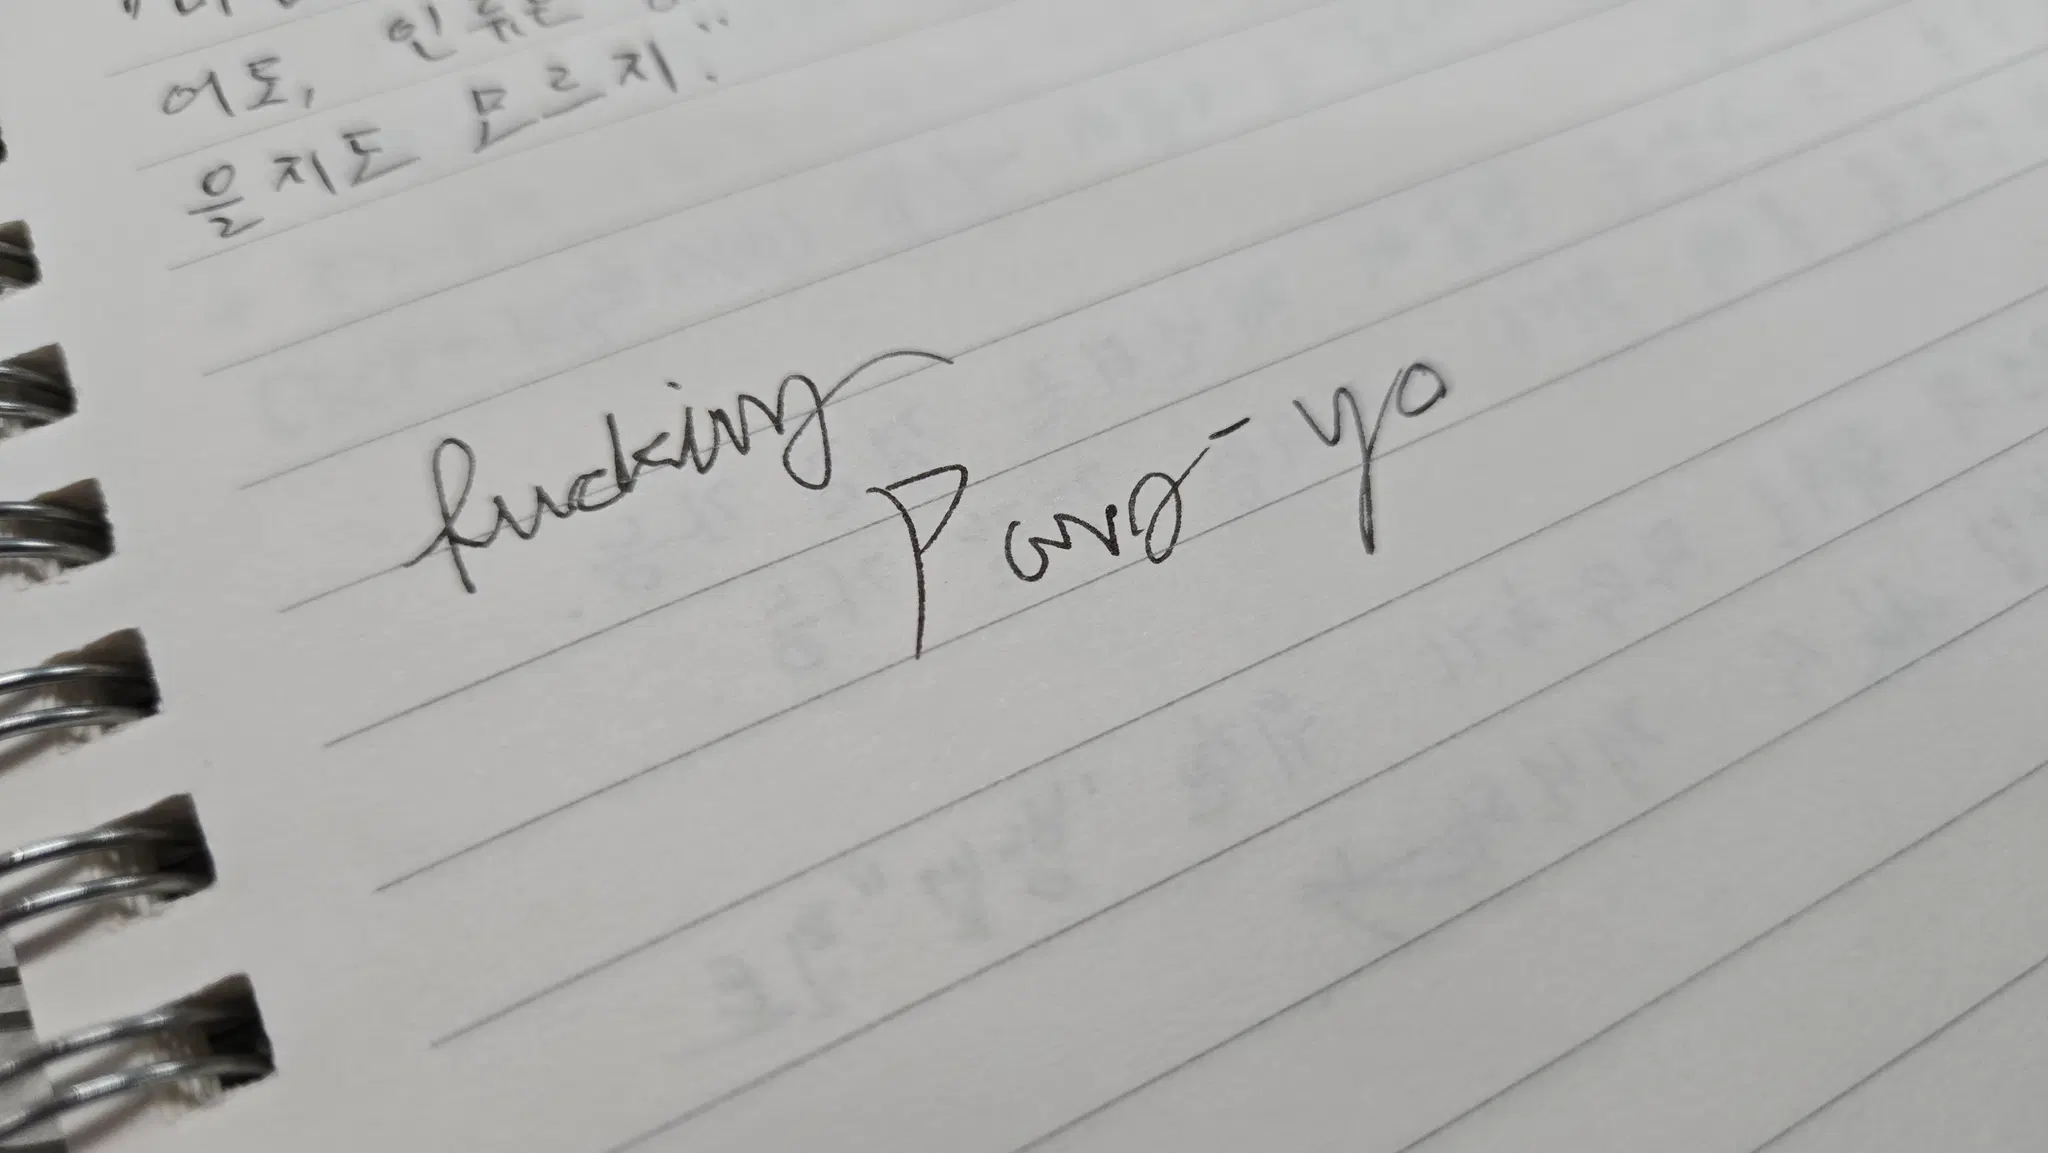 어도, 인류는
을지도 모르지."
fucking
Pang-yo